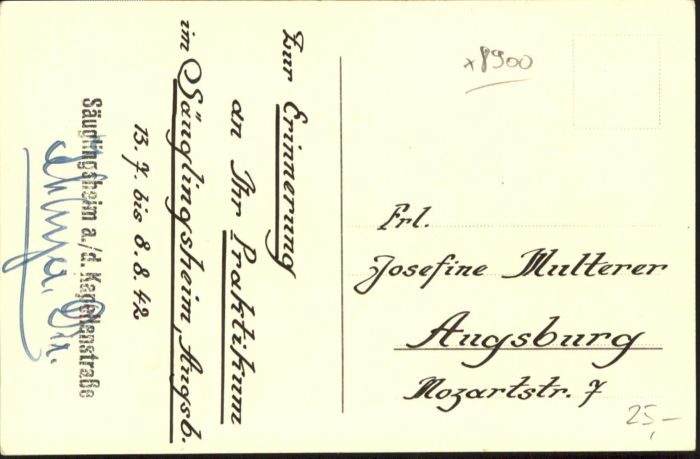 Zur Erinnerung
an Ihr Praktikum
im Säuglingsheim, Augsb.
13. 7. bis 8. 8. 42
Säuglingsheim a./d. Kapellenstraße
x 8900
Frl.
Josefine Multerer
Augsburg
Mozartstr. 7
25,-